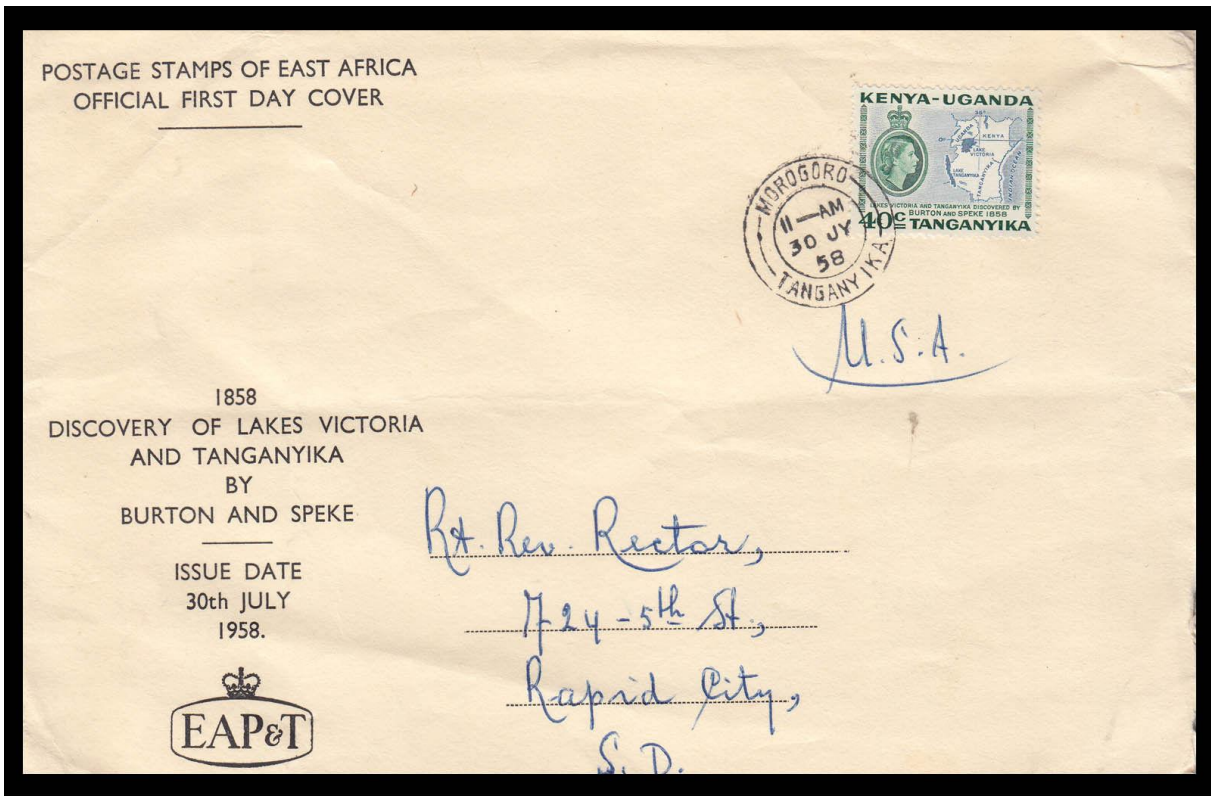 POSTAGE STAMPS OF EAST AFRICA
OFFICIAL FIRST DAY COVER
KENYA-UGANDA
30°
0°
UGANDA
KENYA
LAKE
VICTORIA
LAKE
TANGANYIKA
TANGANYIKA
INDIAN OCEAN
LAKES VICTORIA AND TANGANYIKA DISCOVERED BY
BURTON AND SPEKE 1858
40c TANGANYIKA
MOROGORO
11—AM
30 JY
58
TANGANYIKA
U.S.A.
1858
DISCOVERY OF LAKES VICTORIA
AND TANGANYIKA
BY
BURTON AND SPEKE
ISSUE DATE
30th JULY
1958.
EAP&T
Rt. Rev. Rector,
724-5th St.,
Rapid City,
S. D.